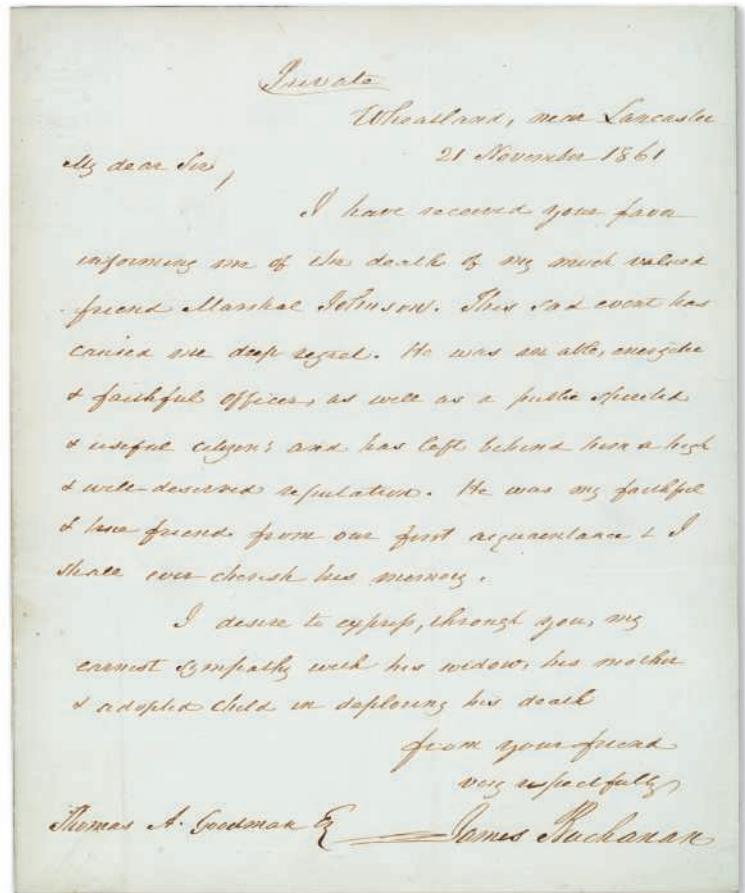 Private
Wheatland, near Lancaster
21 November 1861
My dear Sir,
I have received your favor
informing me of the death of my much valued
friend Marshal Johnson. This sad event has
caused me deep regret. He was an able, energetic
& faithful officer, as well as a public spirited
& useful citizen; and has left behind him a high
& well-deserved reputation. He was my faithful
& true friend from our first acquaintance & I
shall ever cherish his memory.
I desire to express, through you, my
earnest sympathy with his widow, his mother
& adopted child in deploring his death
from your friend
very respectfully
Thomas A. Goodman Esq James Buchanan